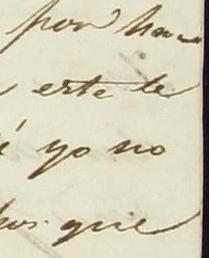 por ha-
este le
yo no
que